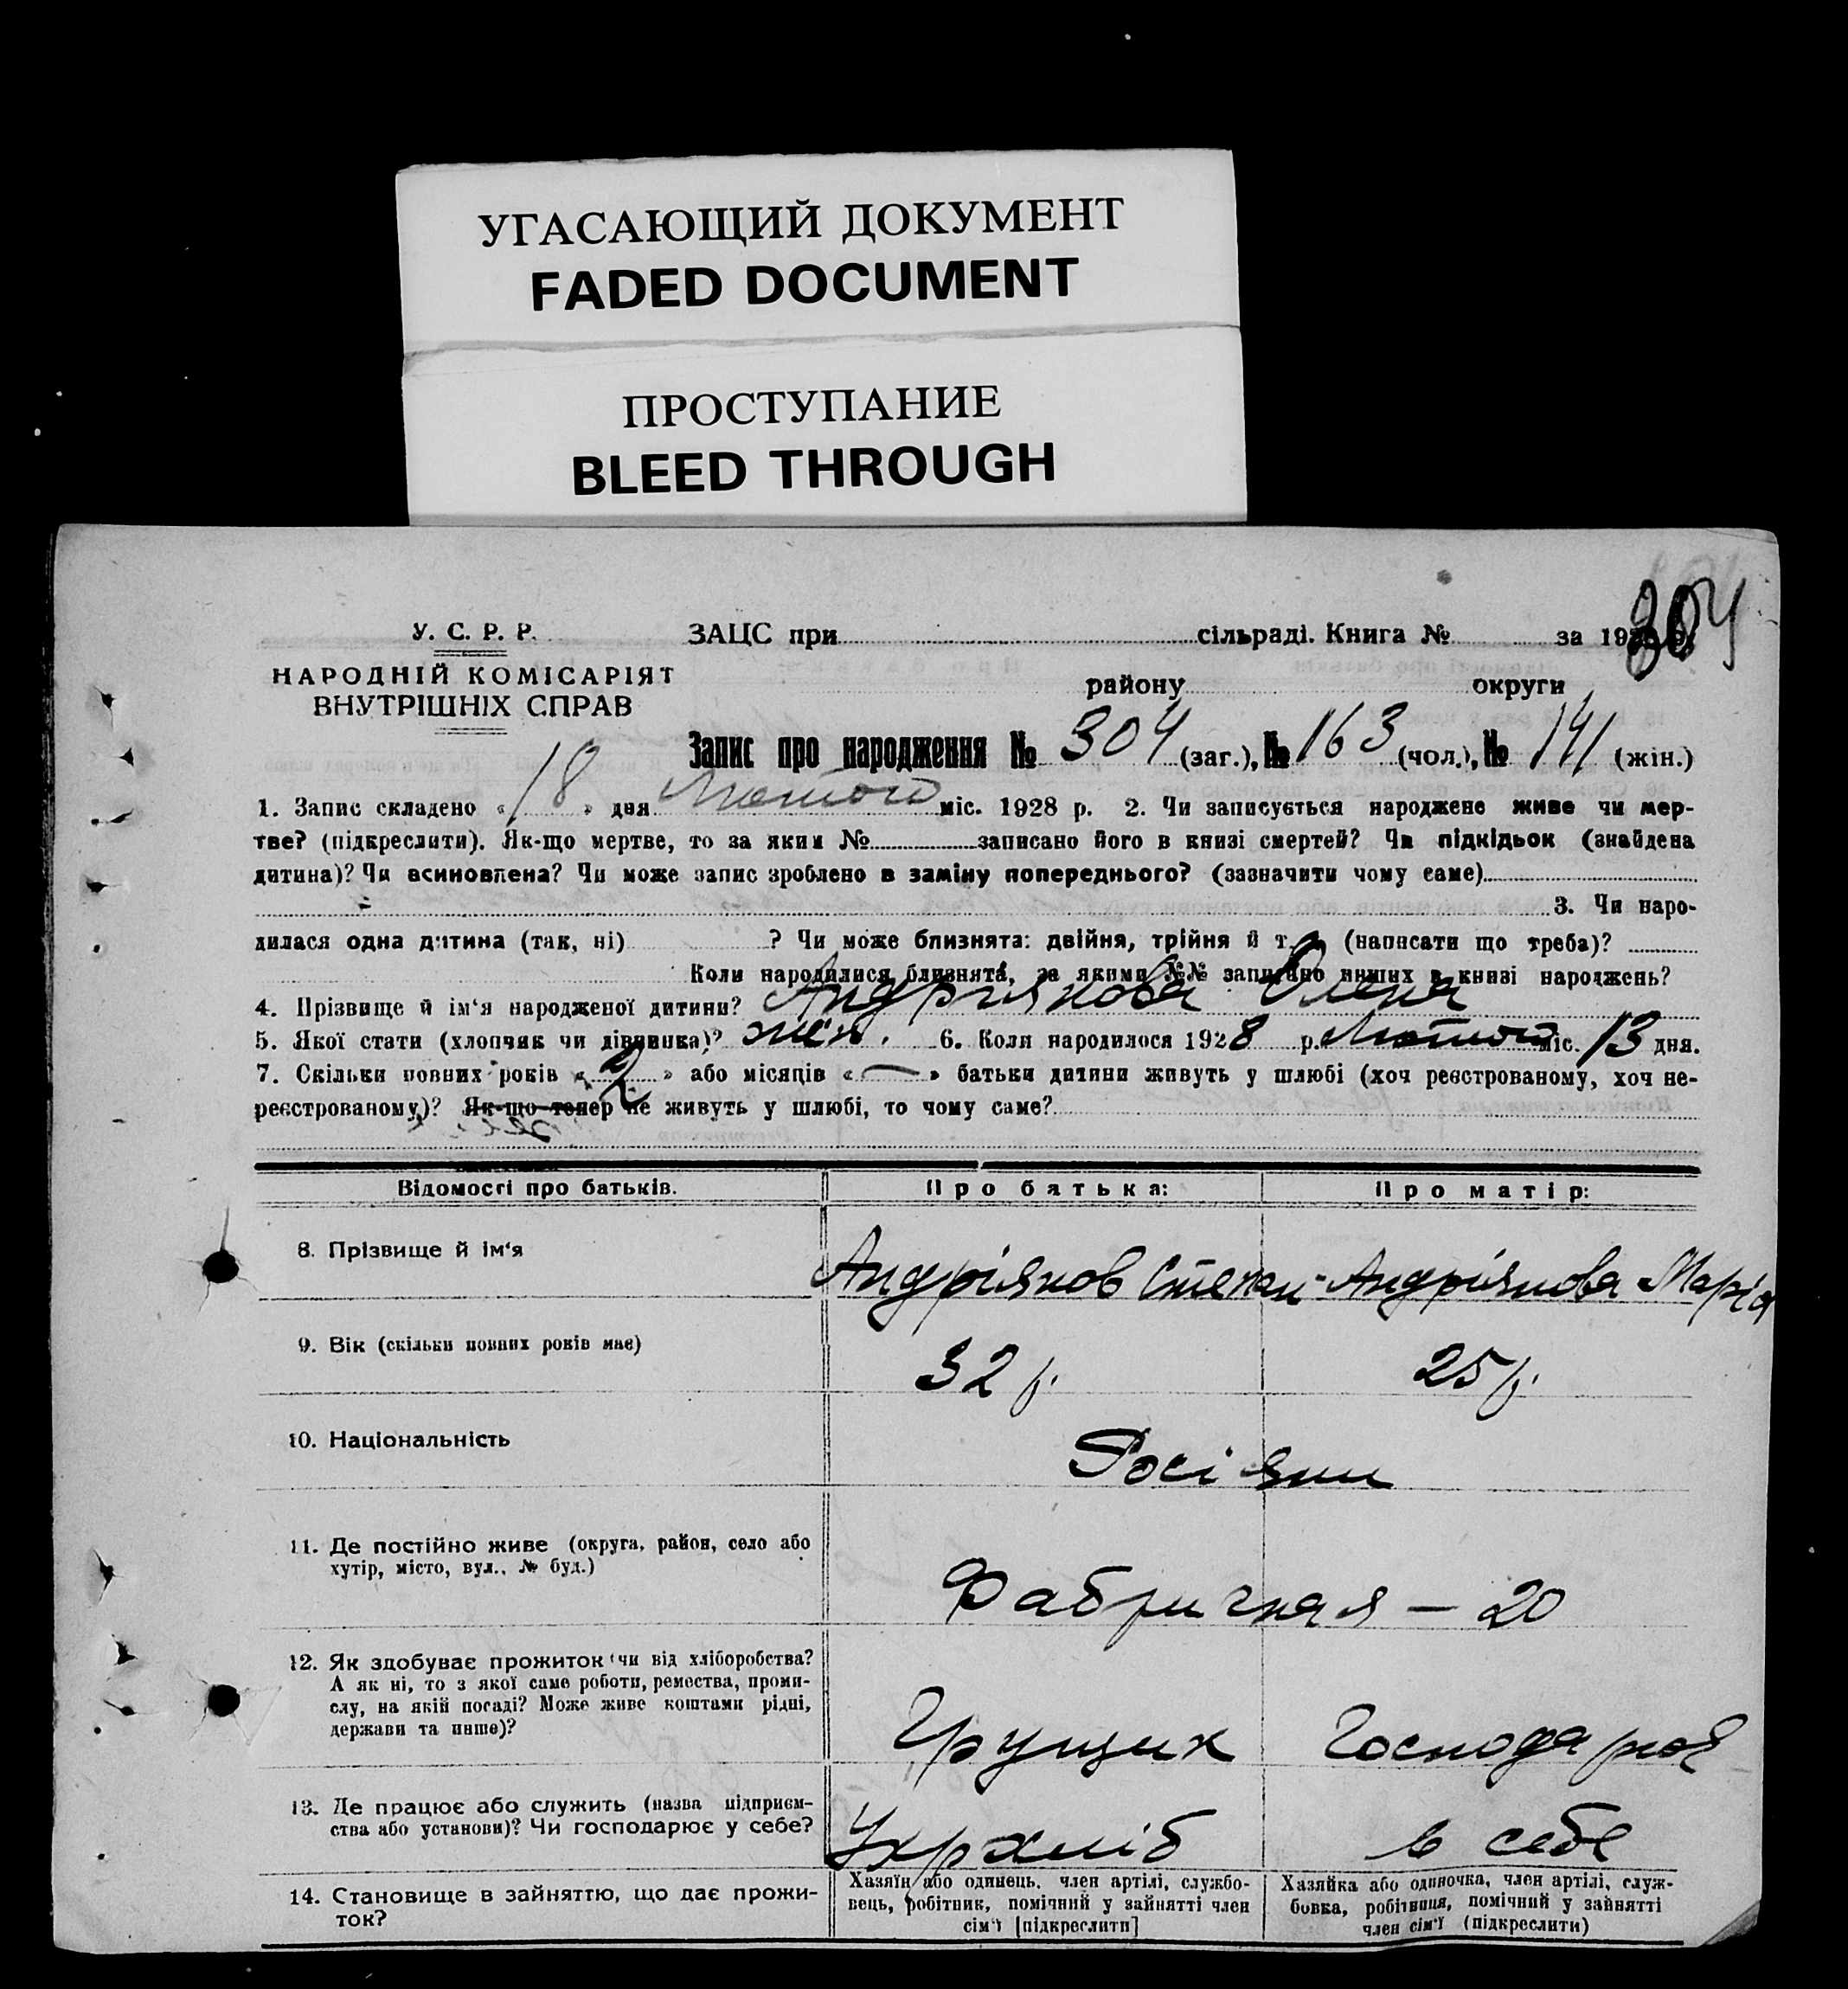 УГАСАЮЩИЙ ДОКУМЕНТ
FADED DOCUMENT
ПРОСТУПАНИЕ
BLEED THROUGH
304
У. С. Р. Р.
НАРОДНІЙ КОМІСАРІЯТ
ВНУТРІШНІХ СПРАВ
ЗАЦС при сільраді. Книга № за 192
району округи
Запис про народження № 304 (заг.), № 163 (чол.), № 141 (жін.)
1. Запис складено «18» дня Лютого міс. 1928 р. 2. Чи записується народжене живе чи мер-
тве? (підкреслити). Як-що мертве, то за яким № записано його в книзі смертей? Чи підкідьок (знайдена
дитина)? Чи всиновлена? Чи може запис зроблено в заміну попереднього? (зазначити чому саме)
3. Чи наро-
дилася одна дитина (так, ні) ? Чи може близнята: двійня, трійня й т. (написати що треба)?
Коли народилися близнята, за якими №№ записано инших в книзі народжень?
4. Прізвище й ім'я народженої дитини? Андріянова Олена
5. Якої статі (хлопчик чи дівчинка)? жін. 6. Коли народилося 1928 р. Лютого міс. 13 дня.
7. Скільки повних років «2» або місяців «—» батьки дитини живуть у шлюбі (хоч реєстрованому, хоч не-
реєстрованому)? Як-що тепер не живуть у шлюбі, то чому саме?
Відомості про батьків. Про батька: Про матір:
8. Прізвище й ім'я Андріянов Степан Андріянова Марія
9. Вік (скільки повних років має) 32 р. 25 р.
10. Національність Росіяни
11. Де постійно живе (округа, район, село або
хутір, місто, вул., № буд.)
Фабричная — 20
12. Як здобуває прожиток (чи від хліборобства?
А як ні, то з якої саме роботи, ремества, проми-
слу, на якій посаді? Може живе коштами рідні,
держави та инше)?
Грущик Господарює
13. Де працює або служить (назва підприєм-
ства або установи)? Чи господарює у себе?
Укрхліб в себе
14. Становище в зайняттю, що дає прожи-
ток?
Хазяїн або одинець, член артілі, службо-
вець, робітник, помічний у зайнятті член
сім'ї [підкреслити]
Хазяйка або одиночка, член артілі, служ-
бовка, робітниця, помічний у зайнятті
член сім'ї (підкреслити)